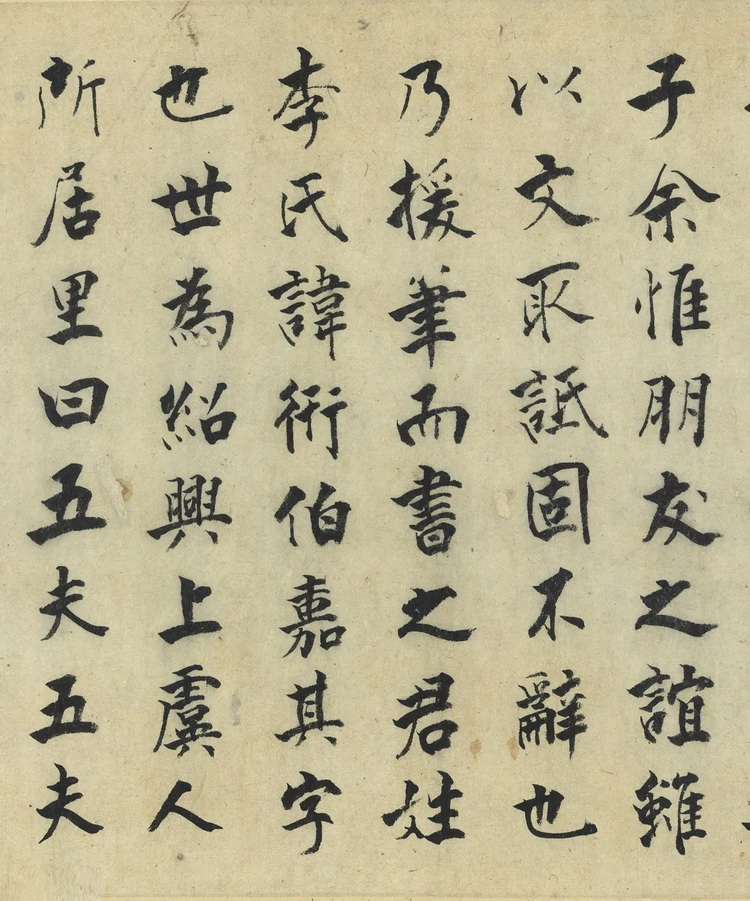 子余惟朋友之誼雖
以文取詆固不辭也
乃援筆而書之君姓
李氏諱衎伯嘉其字
也世為紹興上虞人
所居里曰五夫五夫